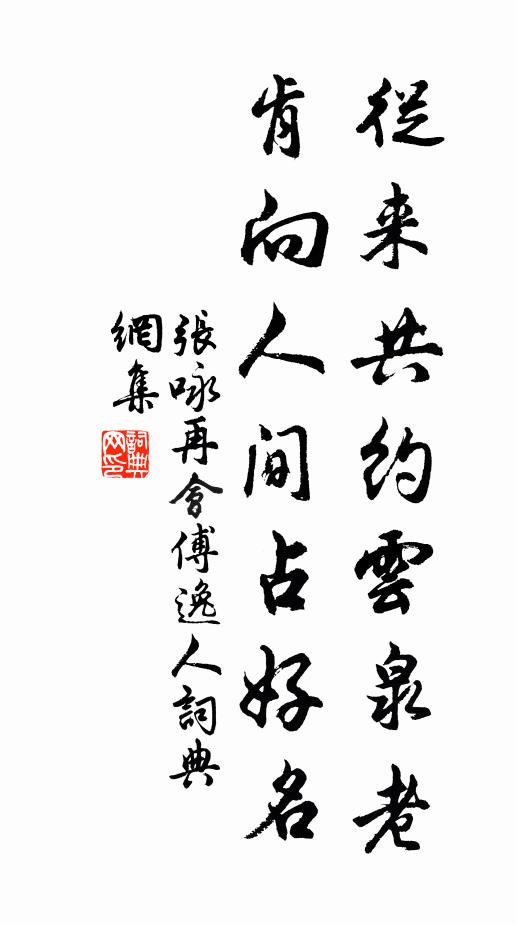 從来共約雲泉老
肯向人间占好名
張咏再會傅逸人詞典
網集
詞典
网印